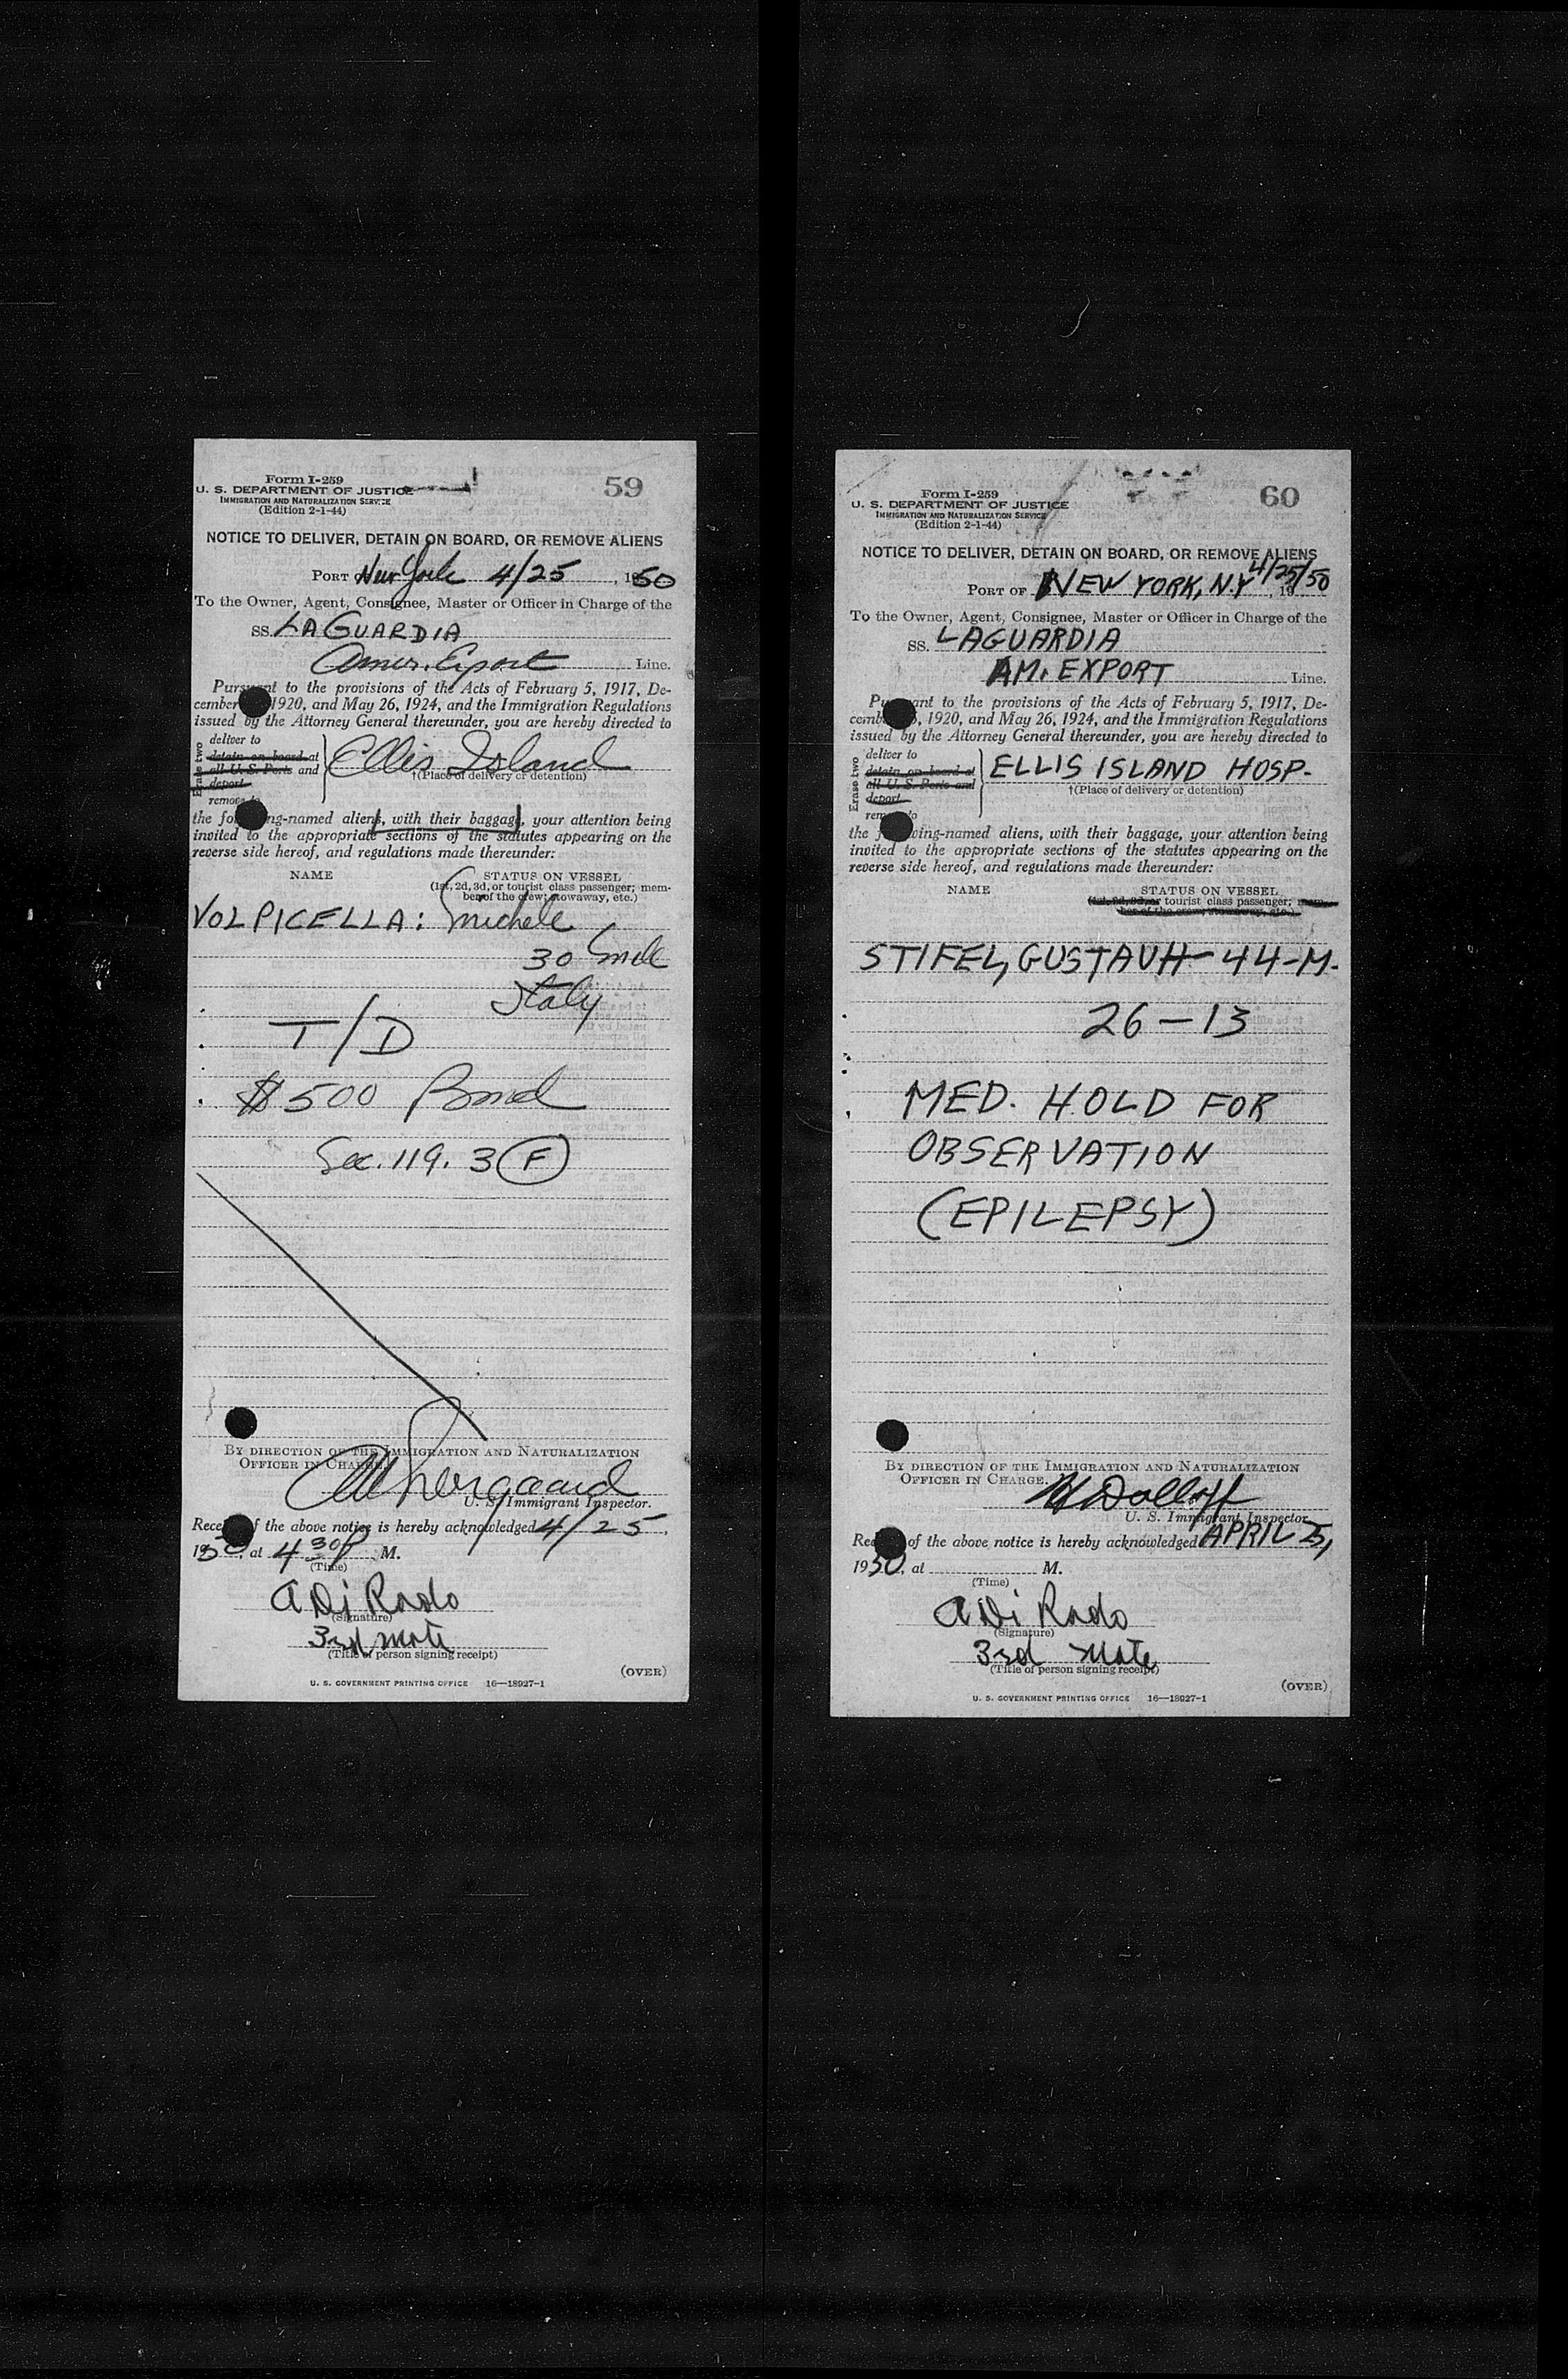 Form I-259
U. S. DEPARTMENT OF JUSTICE
IMMIGRATION AND NATURALIZATION SERVICE
(Edition 2-1-44)
59
NOTICE TO DELIVER, DETAIN ON BOARD, OR REMOVE ALIENS
PORT OF New York 4/25, 1950
To the Owner, Agent, Consignee, Master or Officer in Charge of the
SS. LAGUARDIA
Amer. Export Line.
Pursuant to the provisions of the Acts of February 5, 1917, De-
cember 1920, and May 26, 1924, and the Immigration Regulations
issued by the Attorney General thereunder, you are hereby directed to
Erase two
deliver to
detain on board at
all U. S. Ports and
deport
remove to
Ellis Island
†(Place of delivery or detention)
the following-named aliens, with their baggage, your attention being
invited to the appropriate sections of the statutes appearing on the
reverse side hereof, and regulations made thereunder:
NAME STATUS ON VESSEL
(1st, 2d, 3d, or tourist class passenger; mem-
ber of the crew; stowaway, etc.)
VOLPICELLA: Michele
30 male
Italy
T/D
$500 Bond
Sec. 119. 3 (F)
BY DIRECTION OF THE IMMIGRATION AND NATURALIZATION
OFFICER IN CHARGE.
U. S. Immigrant Inspector.
Receipt of the above notice is hereby acknowledged 4/25,
1950, at 4 30 P. M.
(Time)
(Signature)
3rd mate
(Title of person signing receipt)
(OVER)
U. S. GOVERNMENT PRINTING OFFICE 16—18927-1
Form I-259
U. S. DEPARTMENT OF JUSTICE
IMMIGRATION AND NATURALIZATION SERVICE
(Edition 2-1-44)
60
NOTICE TO DELIVER, DETAIN ON BOARD, OR REMOVE ALIENS
PORT OF NEW YORK, N.Y 4/25/50, 19
To the Owner, Agent, Consignee, Master or Officer in Charge of the
SS. LAGUARDIA
AM. EXPORT Line.
Pursuant to the provisions of the Acts of February 5, 1917, De-
cember 5, 1920, and May 26, 1924, and the Immigration Regulations
issued by the Attorney General thereunder, you are hereby directed to
Erase two
deliver to
detain on board at
all U. S. Ports and
deport
remove to
ELLIS ISLAND HOSP.
†(Place of delivery or detention)
the following-named aliens, with their baggage, your attention being
invited to the appropriate sections of the statutes appearing on the
reverse side hereof, and regulations made thereunder:
NAME STATUS ON VESSEL
(1st, 2d, 3d, or tourist class passenger; mem-
ber of the crew, stowaway, etc.)
STIFEL, GUSTAV H - 44-M.
26-13
MED. HOLD FOR
OBSERVATION
(EPILEPSY)
BY DIRECTION OF THE IMMIGRATION AND NATURALIZATION
OFFICER IN CHARGE.
U. S. Immigrant Inspector.
Receipt of the above notice is hereby acknowledged APRIL 5,
1950, at M.
(Time)
(Signature)
3rd Mate
(Title of person signing receipt)
(OVER)
U. S. GOVERNMENT PRINTING OFFICE 16—18927-1